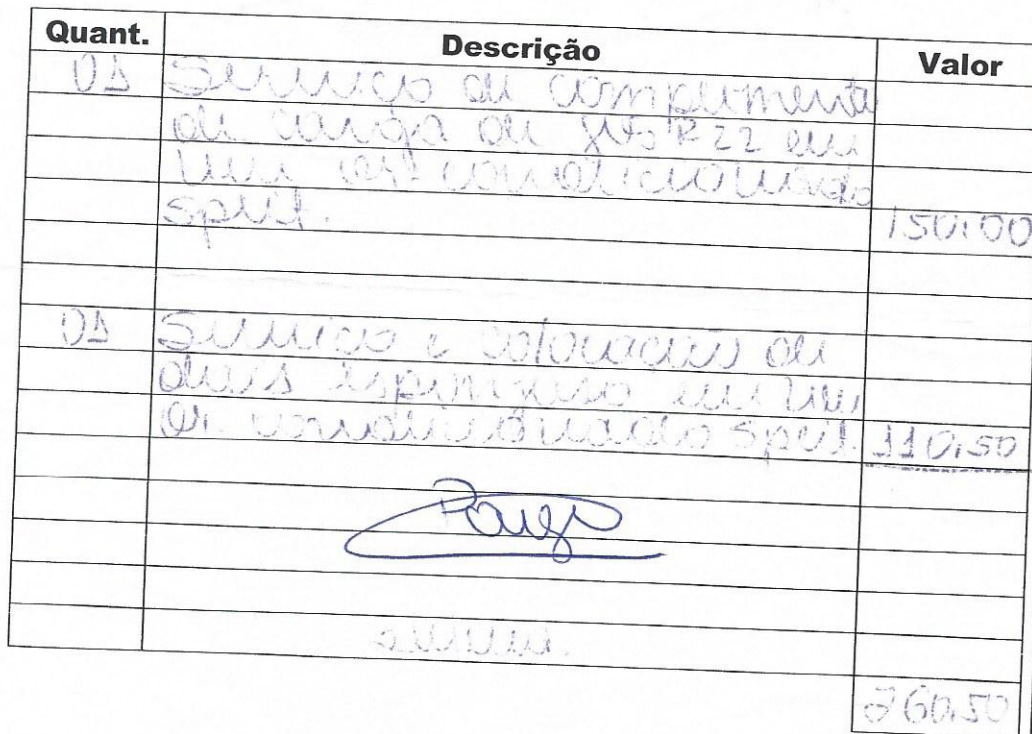 Quant. Descrição Valor
01 Serviço de complemento
de carga de gás R22 em
um ar condicionado
split. 150,00
01 Serviço e colocação de
duas em um
ar condicionado split. 110,50
260,50